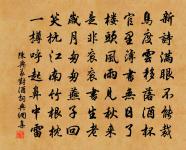 新詩滿眼不能裁
鳥度雲移落酒杯
官里簿書無日了
樓頭風雨見秋來
是非衮衮書生老
歲月匆匆燕子回
笑撫江南竹根枕
一樽呼起鼻中雷
陳與義對酒詩詞典網書